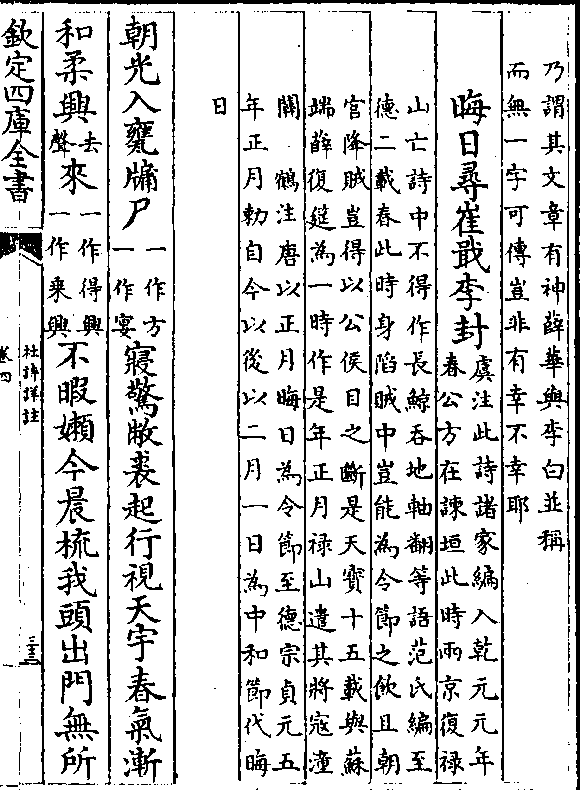 乃謂其文章有神薛華與李白並稱
而無一字可傳豈非有幸不幸耶
晦日尋崔戢李封
虞注此詩諸家編入乾元元年
春公方在諫垣此時兩京復祿
山亡詩中不得作長鯨吞地軸翻等語范氏編至
德二載春此時身陷賊中豈能為令節之飲且朝
官降賊豈得以公侯目之斷是天寶十五載與蘇
端薛復筵為一時作是年正月祿山遣其將寇潼
關 鶴注唐以正月晦日為令節至德宗貞元五
年正月勅自今以後以二月一日為中和節代晦
日
朝光入甕牖尸一作方一作宴寢驚敝裘起行視天宇春氣漸
和柔興去聲來一作得興一作乘興不暇嬾今晨梳我頭出門無所
欽定四庫全書
杜詩詳註
卷四
三十三